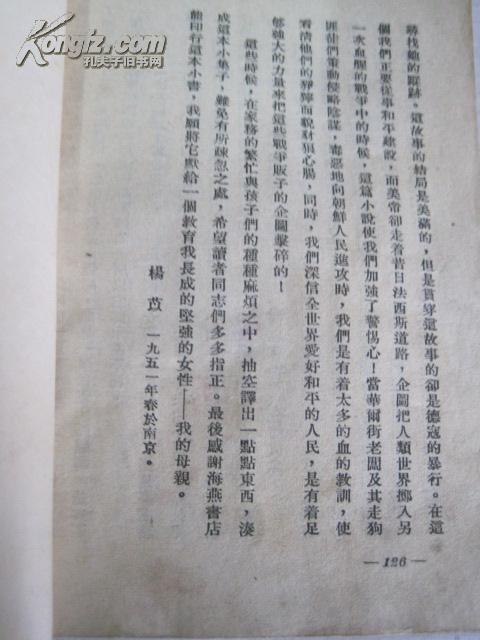 尋找她的蹤跡。這故事的結局是美滿的，但是貫穿這故事的卻是德寇的暴行。在這
個我們正要從事和平建設，而美帝卻走着昔日法西斯道路，企圖把人類世界擲入另
一次血腥的戰爭中的時候，這篇小說使我們加強了警惕心！當華爾街老闆及其走狗
匪徒們策動侵略陰謀，毒惡地向朝鮮人民進攻時，我們是有着太多的血的教訓，使
看清他們的猙獰面貌豺狼心腸，同時，我們深信全世界愛好和平的人民，是有着足
够強大的力量來把這些戰爭販子的企圖擊碎的！
這些時候，在家務的繁忙與孩子們的種種麻煩之中，抽空譯出一點點東西，湊
成這本小集子，難免有所疎忽之處，希望讀者同志們多多指正。最後感謝海燕書店
能印行這本小書，我願將它獻給一個教育我長成的堅強的女性——我的母親。
楊苡 一九五一年春於南京。
—126—
孔夫子旧书网
www.kongfz.com